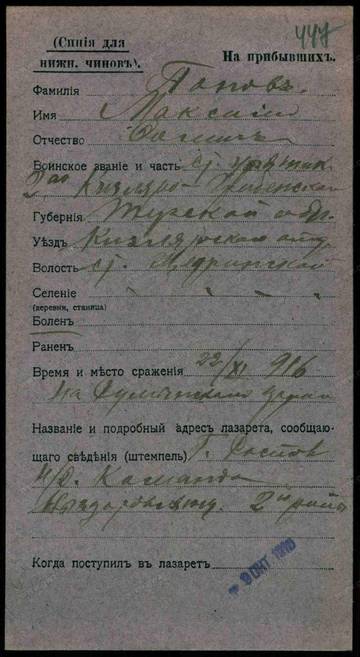 447
(Синія для
нижн. чиновъ).
На прибывшихъ.
Фамилія Поповъ.
Имя Максимъ
Отчество
Воинское званіе и часть ст. урядник
2го Кизляро-Гребенской
Губернія Терской обл.
Уѣздъ Кизлярскаго отд.
Волость ст. Щедринской
Селеніе
(деревня, станица)
Боленъ
Раненъ
Время и мѣсто сраженія 22/XI 916
на
Названіе и подробный адресъ лазарета, сообщаю-
щаго свѣдѣнія (штемпель) г. Ростов
н/Д. Команда
2й
Когда поступилъ въ лазаретъ